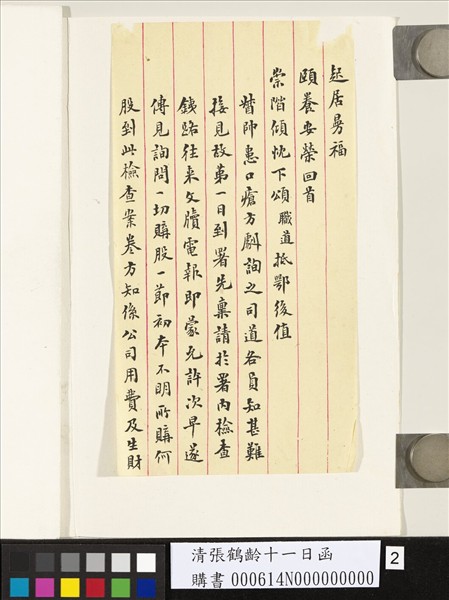 起居曼福
頤養安榮回首
崇階傾忱下頌職道抵鄂後值
督帥患口瘡方劇詢之司道各員知甚難
接見故第一日到署先稟請於署內檢查
錢路往來文牘電報即蒙允許次早遂
傳見詢問一切購股一節初本不明所購何
股到此檢查案卷方知係公司用費及生財
清張鶴齡十一日函
購書 000614N000000000
2